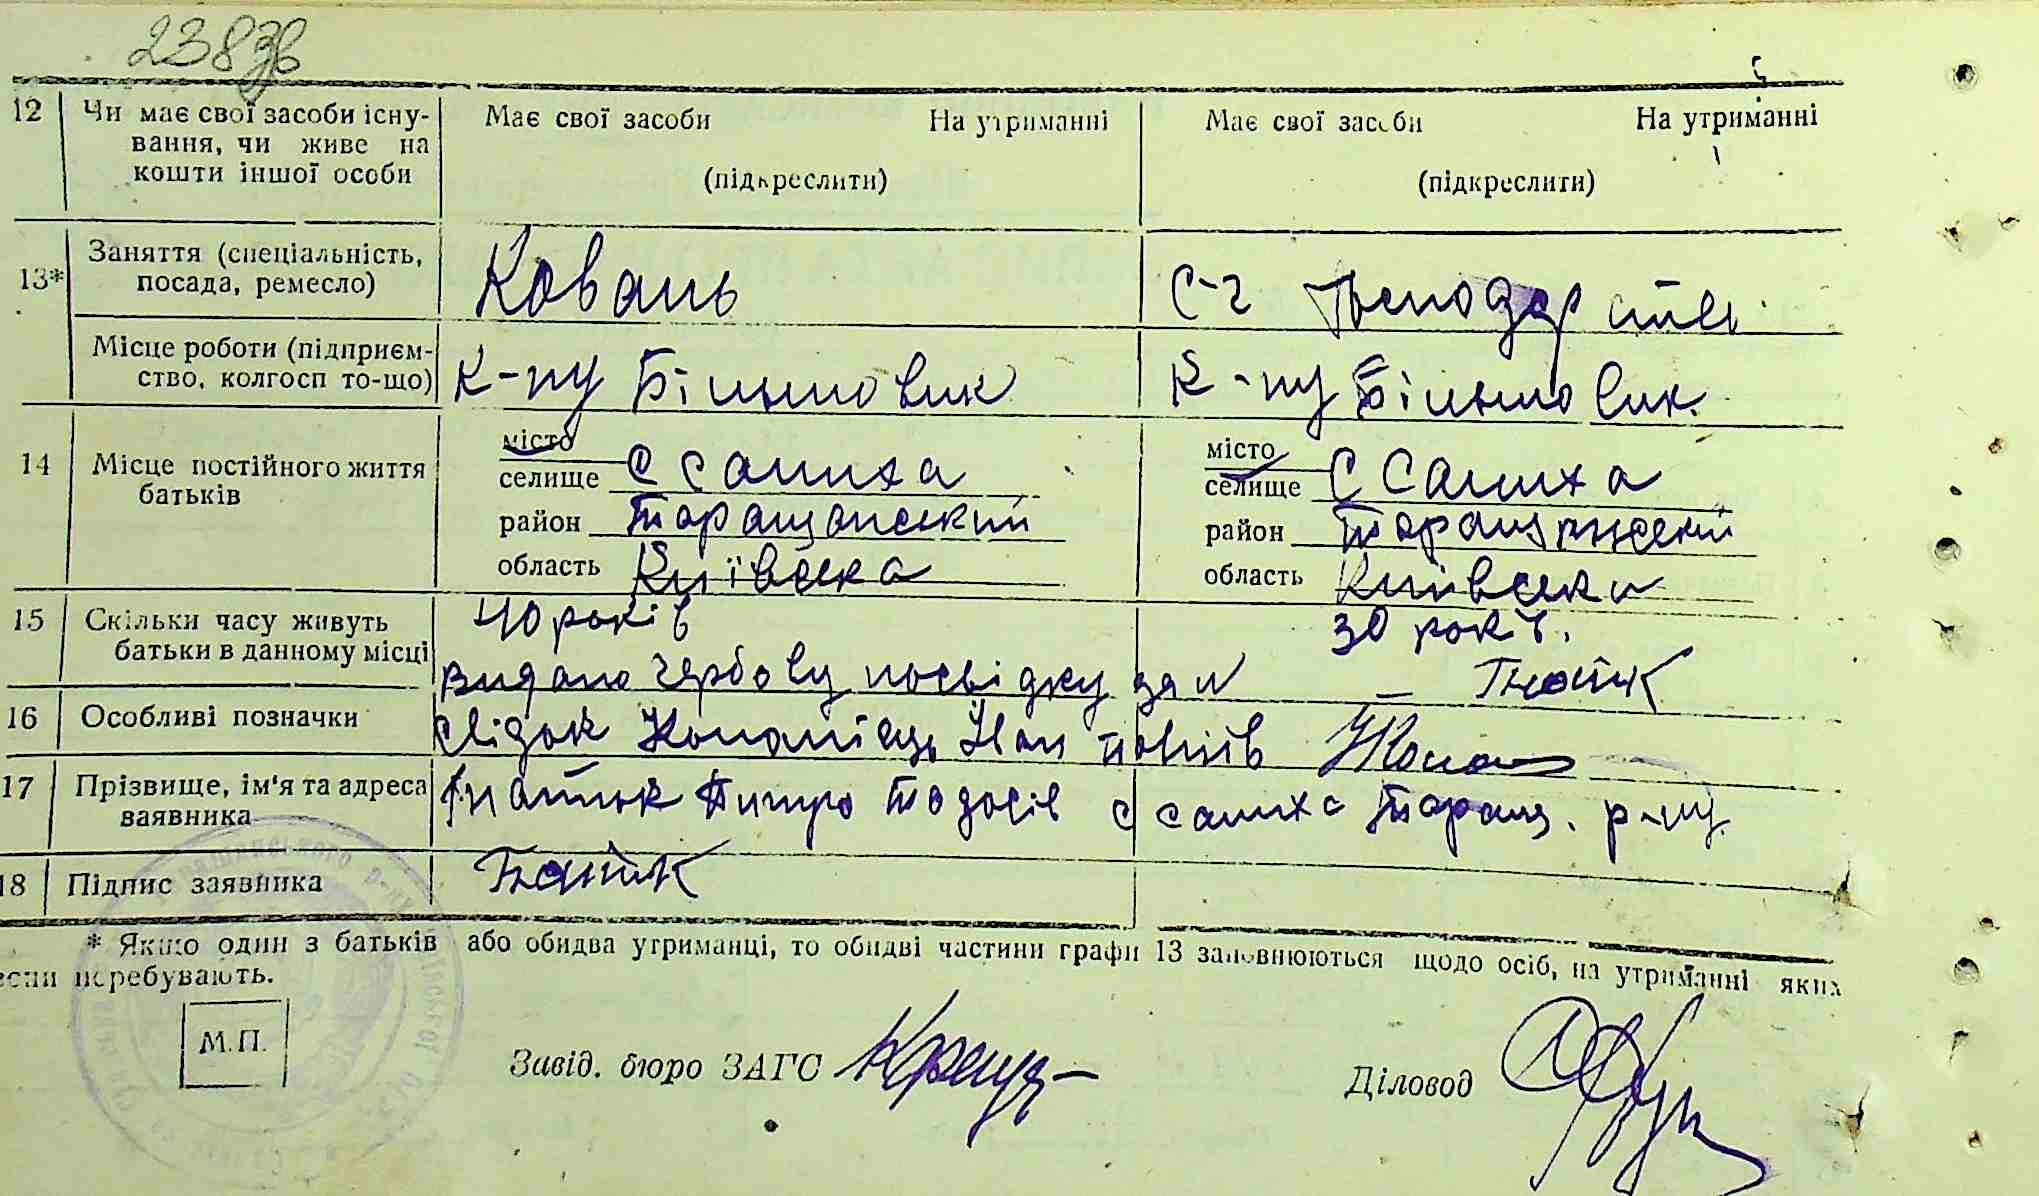 238зв
12 Чи має свої засоби існу- Має свої засоби На утриманні Має свої засоби На утриманні
вання, чи живе на
кошти іншої особи (підкреслити) (підкреслити)
13* Заняття (спеціальність, посада, ремесло) Коваль С-г
Місце роботи (підприєм- К-пу Більшовик К-пу Більшовик.
ство, колгосп то-що)
14 Місце постійного життя батьків
місто місто
селище с Салиха селище с Салиха
район Таращанський район Таращанський
область Київська область Київська
15 Скільки часу живуть 40 років 30 років.
батьки в данному місці
видано гербову посвідку за № – Гнатюк
16 Особливі позначки свідок Коломієць Іван
17 Прізвище, ім'я та адреса Гнатюк Тодосів с Салиха Таращ. р-ну
заявника
18 Підпис заявника Гнатюк
* Якщо один з батьків або обидва утриманці, то обидві частини графи 13 заповнюються щодо осіб, на утриманні яких
перебувають.
М.П.
Завід. бюро ЗАГС Діловод